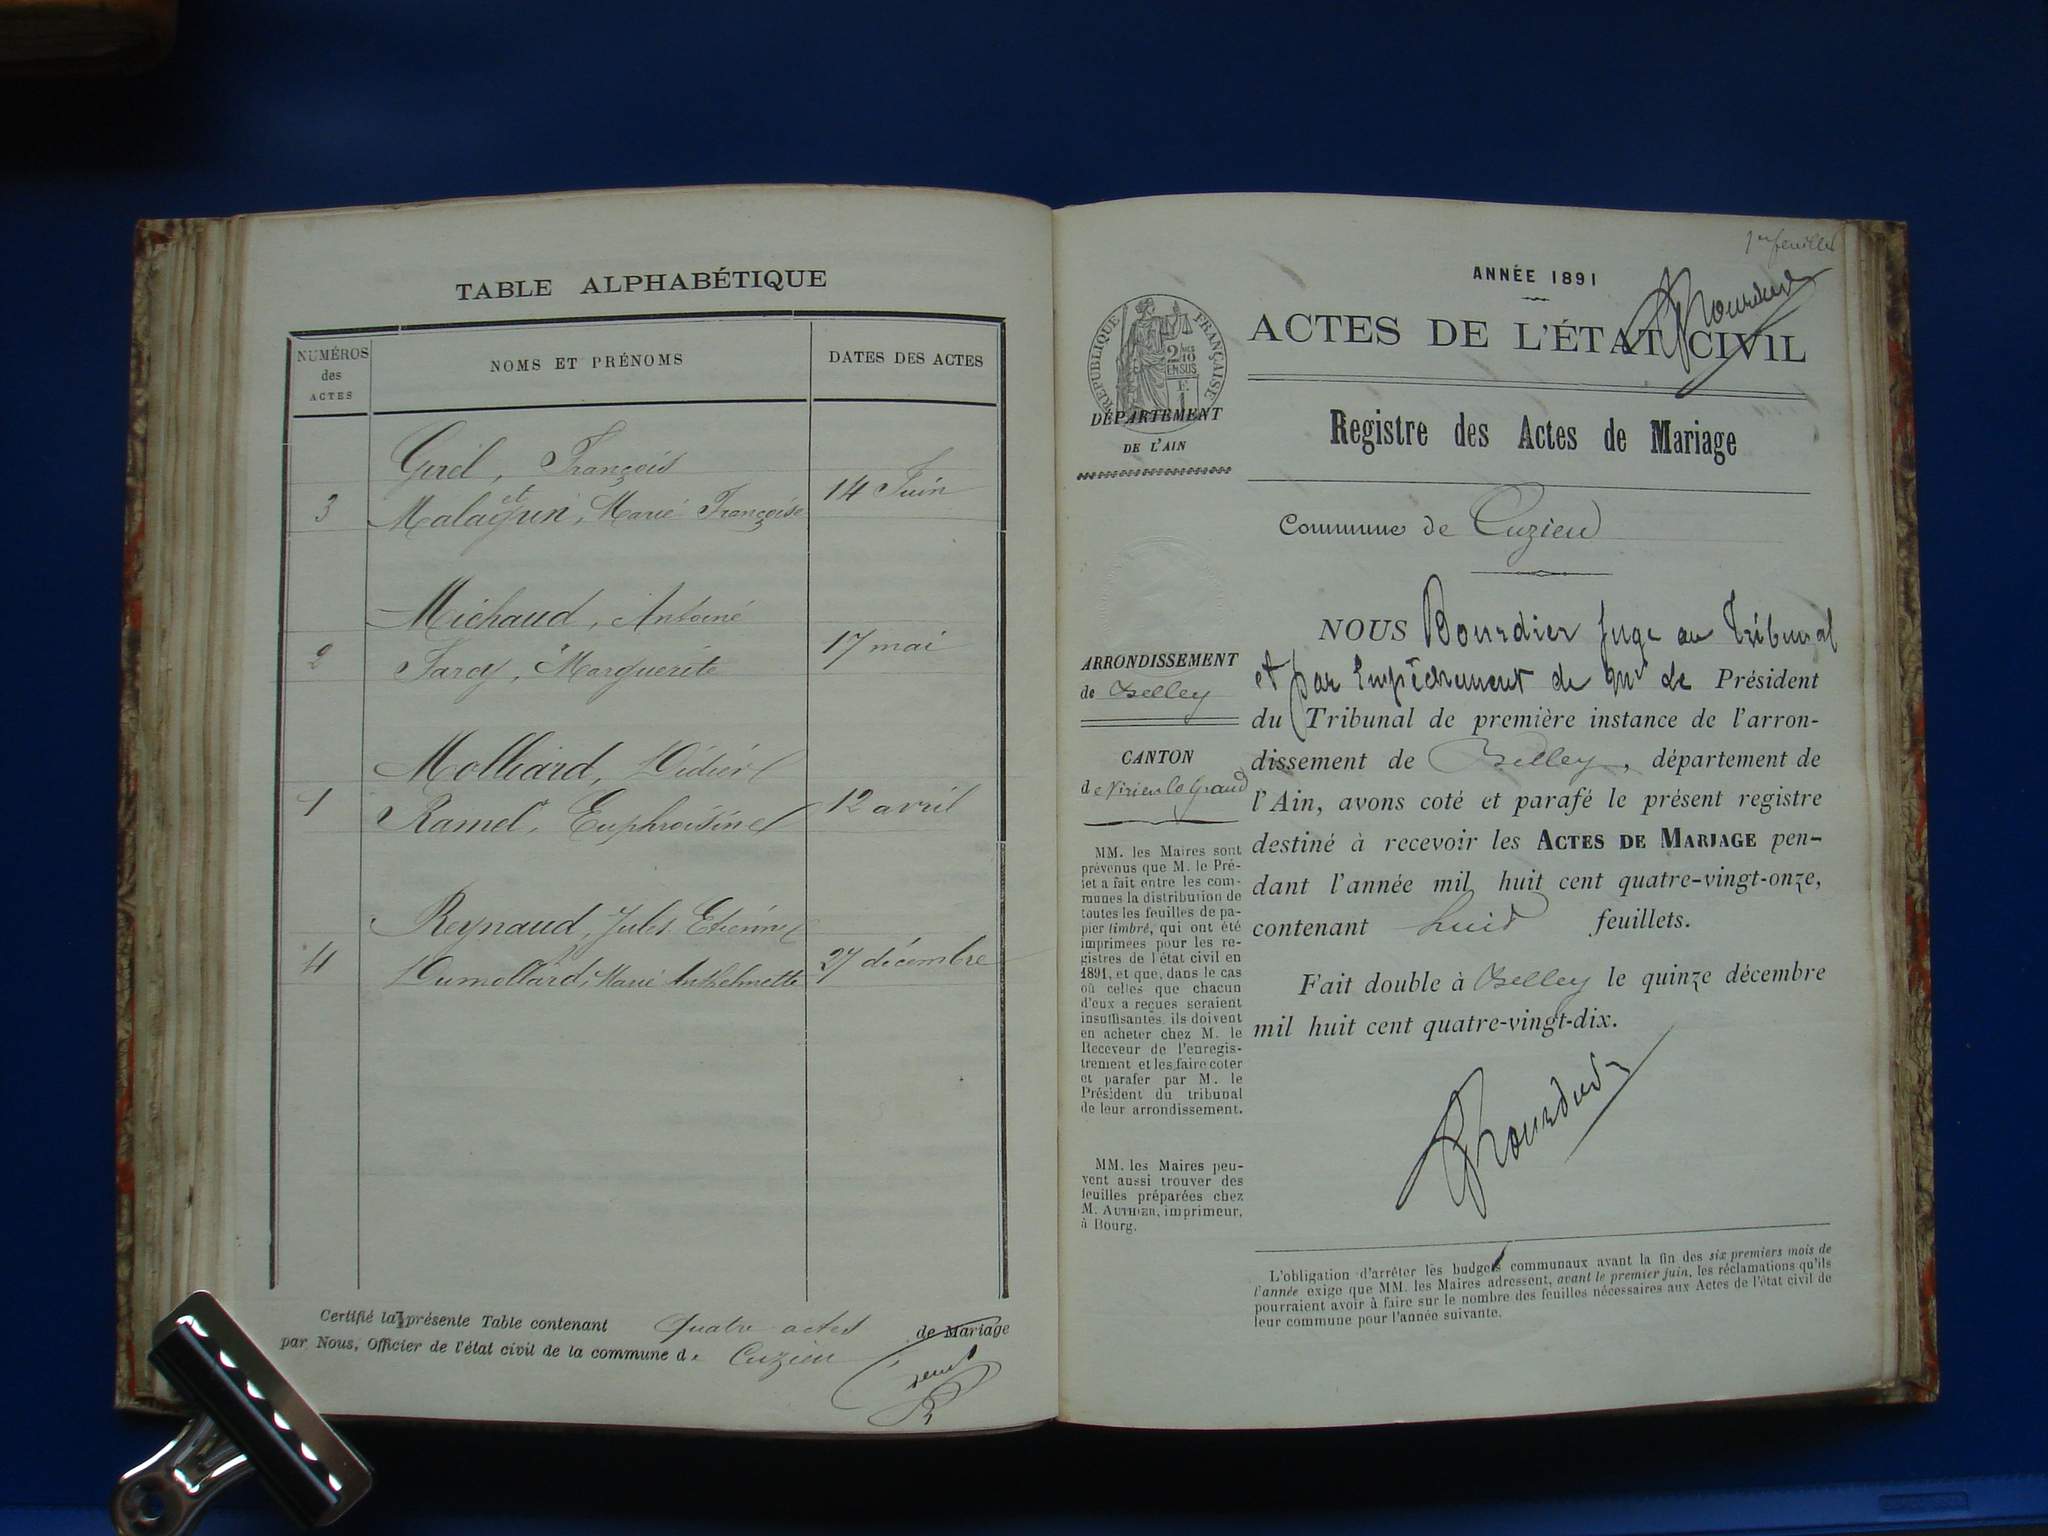 TABLE ALPHABÉTIQUE
NUMÉROS des ACTES
NOMS ET PRÉNOMS
DATES DES ACTES
Girel, François
et
3 Malaquin, Marie Françoise 14 Juin
Michaud, Antoine
2 Sarcy, Marguerite 17 mai
Molliard, Didier
1 Ramel, Euphroisine 12 avril
Reynaud, Jules Etienne
4 Dumollard, Marie Anthelmette 27 décembre
Certifié la présente Table contenant Quatre actes de Mariage
par Nous, Officier de l'état civil de la commune de Cuzieu
1er feuillet
ANNÉE 1891
ACTES DE L'ÉTAT CIVIL
RÉPUBLIQUE FRANÇAISE
DÉPARTEMENT
DE L'AIN
Registre des Actes de Mariage
Commune de Cuzieu
ARRONDISSEMENT
de Belley
CANTON
de Virieu le Grand
MM. les Maires sont
prévenus que M. le Pré-
fet a fait entre les com-
munes la distribution de
toutes les feuilles de pa-
pier timbré, qui ont été
imprimées pour les re-
gistres de l'état civil en
1891, et que, dans le cas
où celles que chacun
d'eux a reçues seraient
insuffisantes, ils doivent
en acheter chez M. le
Receveur de l'enregis-
trement et les faire coter
et parafer par M. le
Président du tribunal
de leur arrondissement.
MM. les Maires peu-
vent aussi trouver des
feuilles préparées chez
M. AUTHIER, imprimeur,
à Bourg.
NOUS Bourdier Juge au Tribunal
et par Empêchement de Mr Le Président
du Tribunal de première instance de l'arron-
dissement de Belley, département de
l'Ain, avons coté et parafé le présent registre
destiné à recevoir les ACTES DE MARIAGE pen-
dant l'année mil huit cent quatre-vingt-onze,
contenant huit feuillets.
Fait double à Belley le quinze décembre
mil huit cent quatre-vingt-dix.
Bourdier
L'obligation d'arrêter les budgets communaux avant la fin des six premiers mois de
l'année exige que MM. les Maires adressent, avant le premier juin, les réclamations qu'ils
pourraient avoir à faire sur le nombre des feuilles nécessaires aux Actes de l'état civil de
leur commune pour l'année suivante.